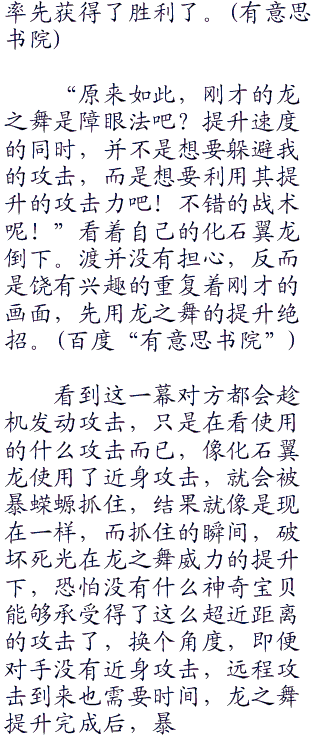 率先获得了胜利了。(有意思
书院)
“原来如此，刚才的龙
之舞是障眼法吧？提升速度
的同时，并不是想要躲避我
的攻击，而是想要利用其提
升的攻击力吧！不错的战术
呢！”看着自己的化石翼龙
倒下。渡并没有担心，反而
是饶有兴趣的重复着刚才的
画面，先用龙之舞的提升绝
招。(百度“有意思书院”)
看到这一幕对方都会趁
机发动攻击，只是在看使用
的什么攻击而已，像化石翼
龙使用了近身攻击，就会被
暴蝾螈抓住，结果就像是现
在一样，而抓住的瞬间，破
坏死光在龙之舞威力的提升
下，恐怕没有什么神奇宝贝
能够承受得了这么超近距离
的攻击了，换个角度，即便
对手没有近身攻击，远程攻
击到来也需要时间，龙之舞
提升完成后，暴